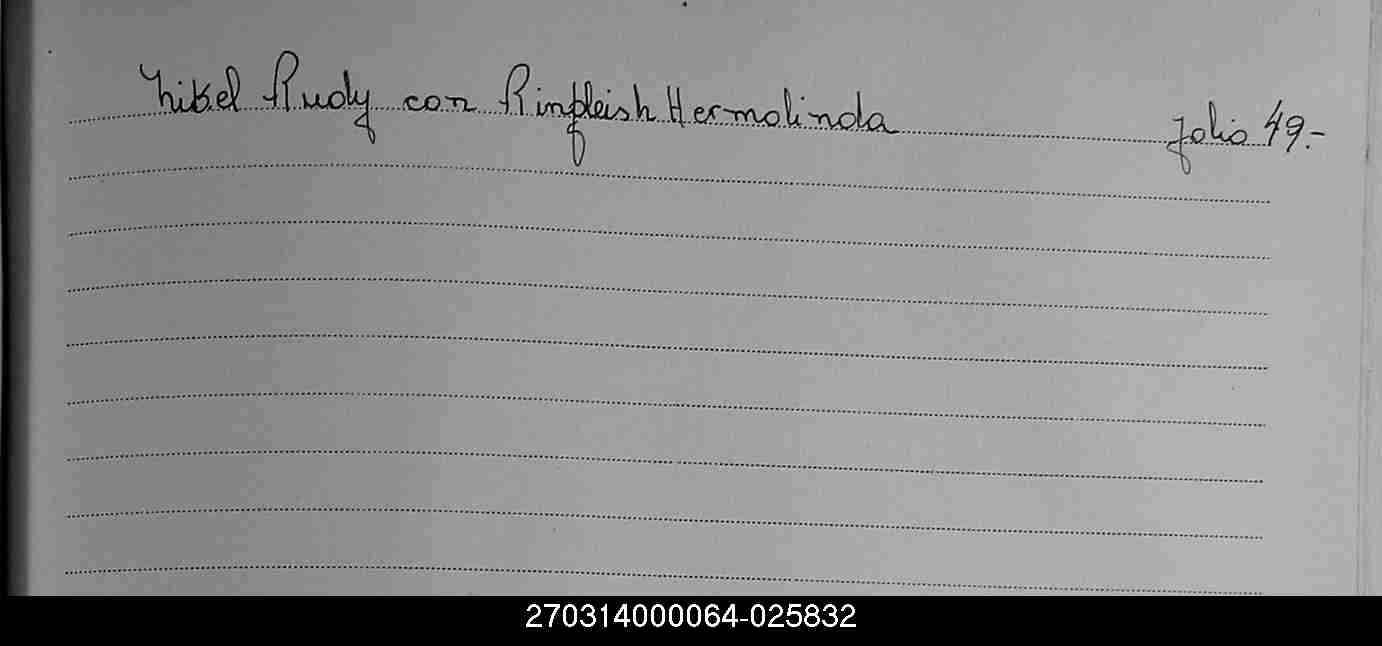 Rudy con Rinfleish Hermolinda folio 49.-
270314000064-025832